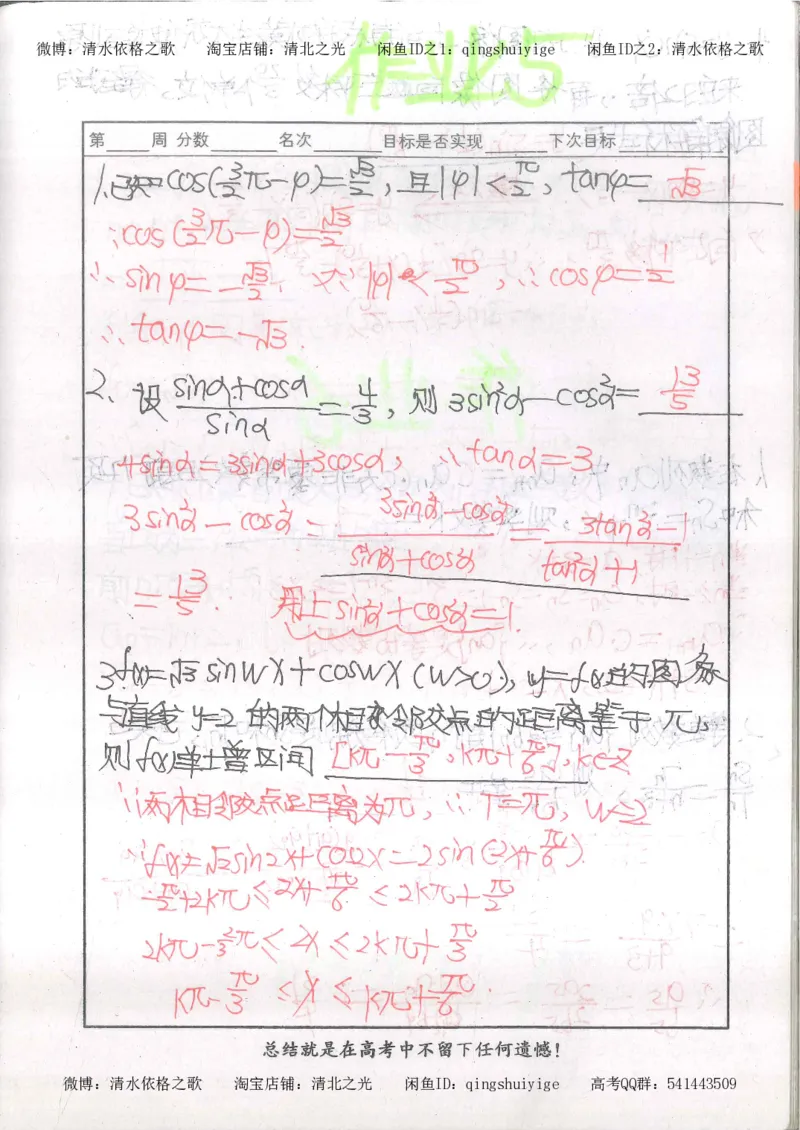 微博：清水依格之歌 淘宝店铺：清北之光 闲鱼ID之1：qingshuiyige 闲鱼ID之2：清水依格之歌
作业5
第 周 分数 名次 目标是否实现 下次目标
1.已知cos(3/2π-φ)=√3/2，且|φ|<π/2，tanφ= √3
∵cos(3/2π-φ)=√3/2
∴sinφ=-√3/2，又∵|φ|<π/2，∴cosφ=1/2
∴tanφ=-√3.
2、设 (sinα+cosα)/sinα=4/3，则3sin²α-cos²α= 13/5
4sinα=3sinα+3cosα，∴tanα=3
3sin²α-cos²α=(3sin²α-cos²α)/(sin²α+cos²α)=(3tan²α-1)/(tan²α+1)
=13/5. 用上sin²α+cos²α=1.
3 f(x)=√3sinwx+coswx(w>0)，y=f(x)的图象
与直线y=2的两个相邻交点的距离等于π，
则f(x)单增区间 [kπ-π/3，kπ+π/6]，k∈Z
∵两相邻交点距离为π，∴T=π，w=2
∴f(x)=√2sin2x+cos2x=2sin(2x+π/6).
-π/2+2kπ≤2x+π/6≤2kπ+π/2
2kπ-2/3π≤2x≤2kπ+π/3
kπ-π/3≤x≤kπ+π/6.
总结就是在高考中不留下任何遗憾！
微博：清水依格之歌 淘宝店铺：清北之光 闲鱼ID：qingshuiyige 高考QQ群：541443509